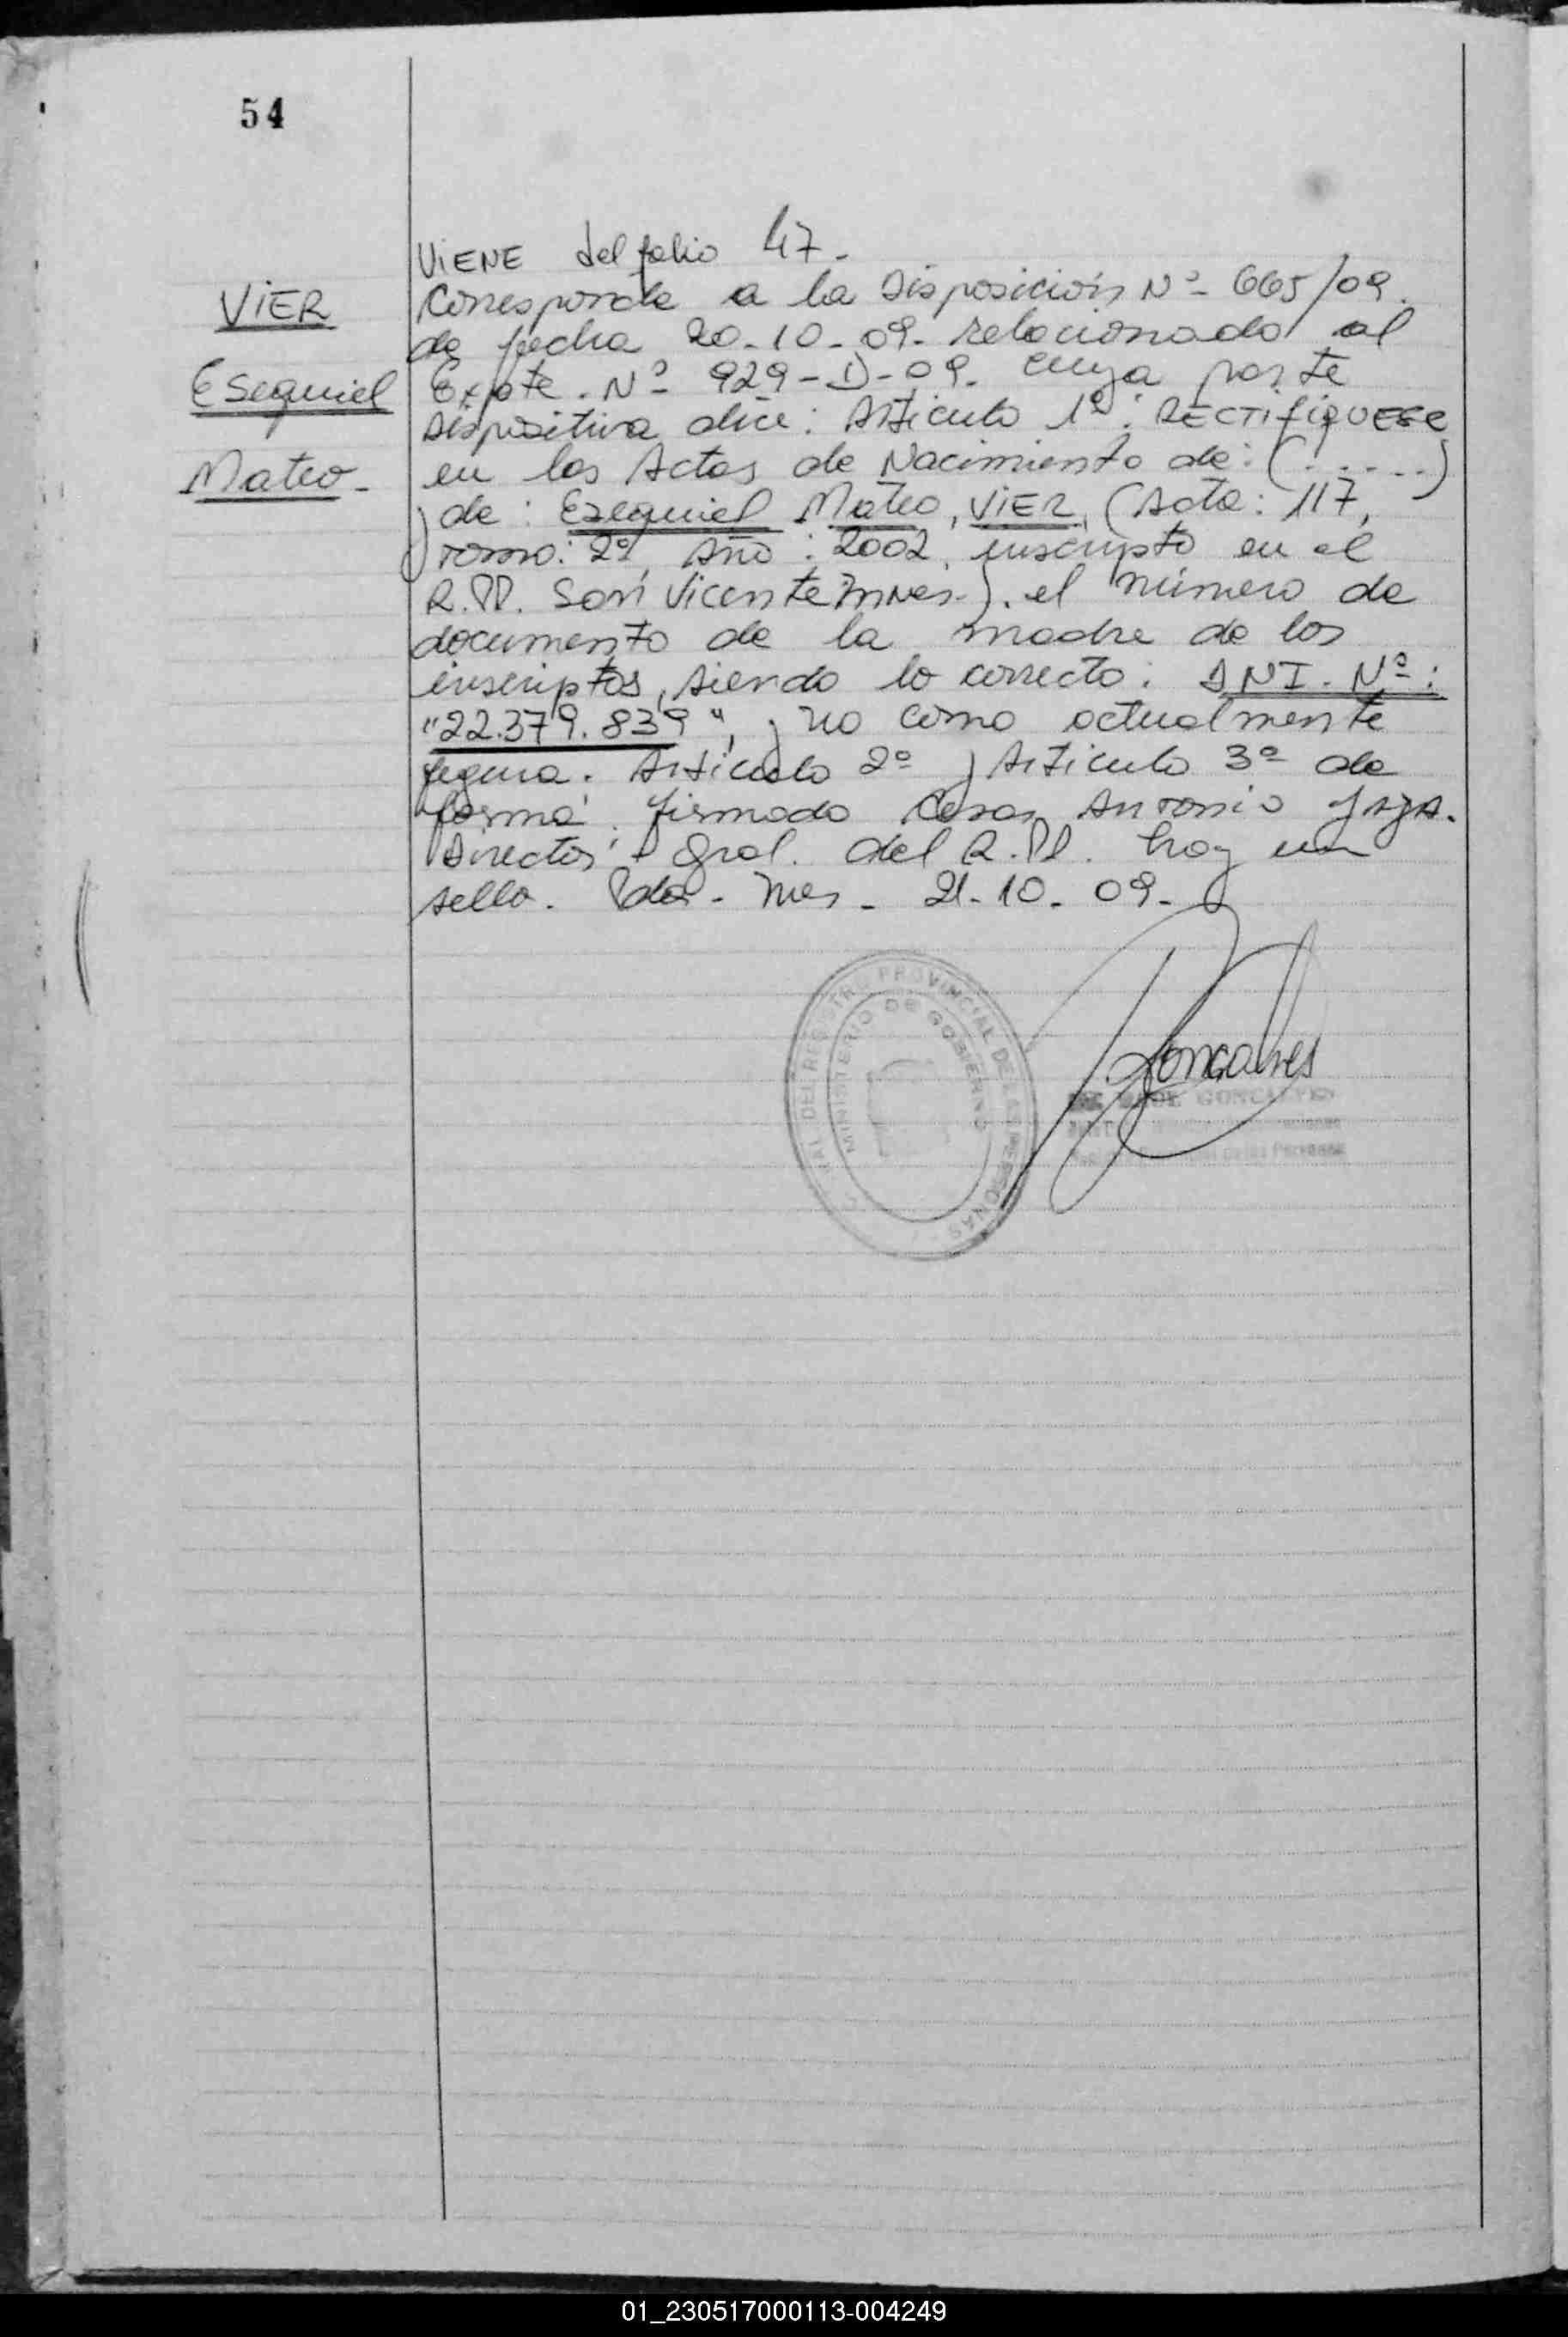 54
VIER
Esequiel
Mateo-
VIENE del folio 47.-
Corresponde a la Disposición Nº- 665/09.
de fecha 20-10-09- relacionado al
Expte. Nº 929-D-09. cuya parte
Dispositiva dice: Articulo 1º: RECTifiQUESE
en las Actas de Nacimiento de: (.....)
y de: Ezequiel Mateo, VIER, (Acta: 117,
Tomo: 2º, Año: 2002, inscripto en el
R.PP. San Vicente Mnes-). el número de
documento de la madre de los
inscriptos, siendo lo correcto: DNI. Nº:
"22.379.839", y no como actualmente
figura. Articulo 2º y Articulo 3º de
forma. firmado Cesar Antonio
Director Gral. del R.PP. hay un
sello. Pdas- Mes- 21-10-09-
Goncalves
GONCALVES
DEL REGISTRO PROVINCIAL DE LAS PERSONAS
MINISTERIO DE GOBIERNO
01_230517000113-004249